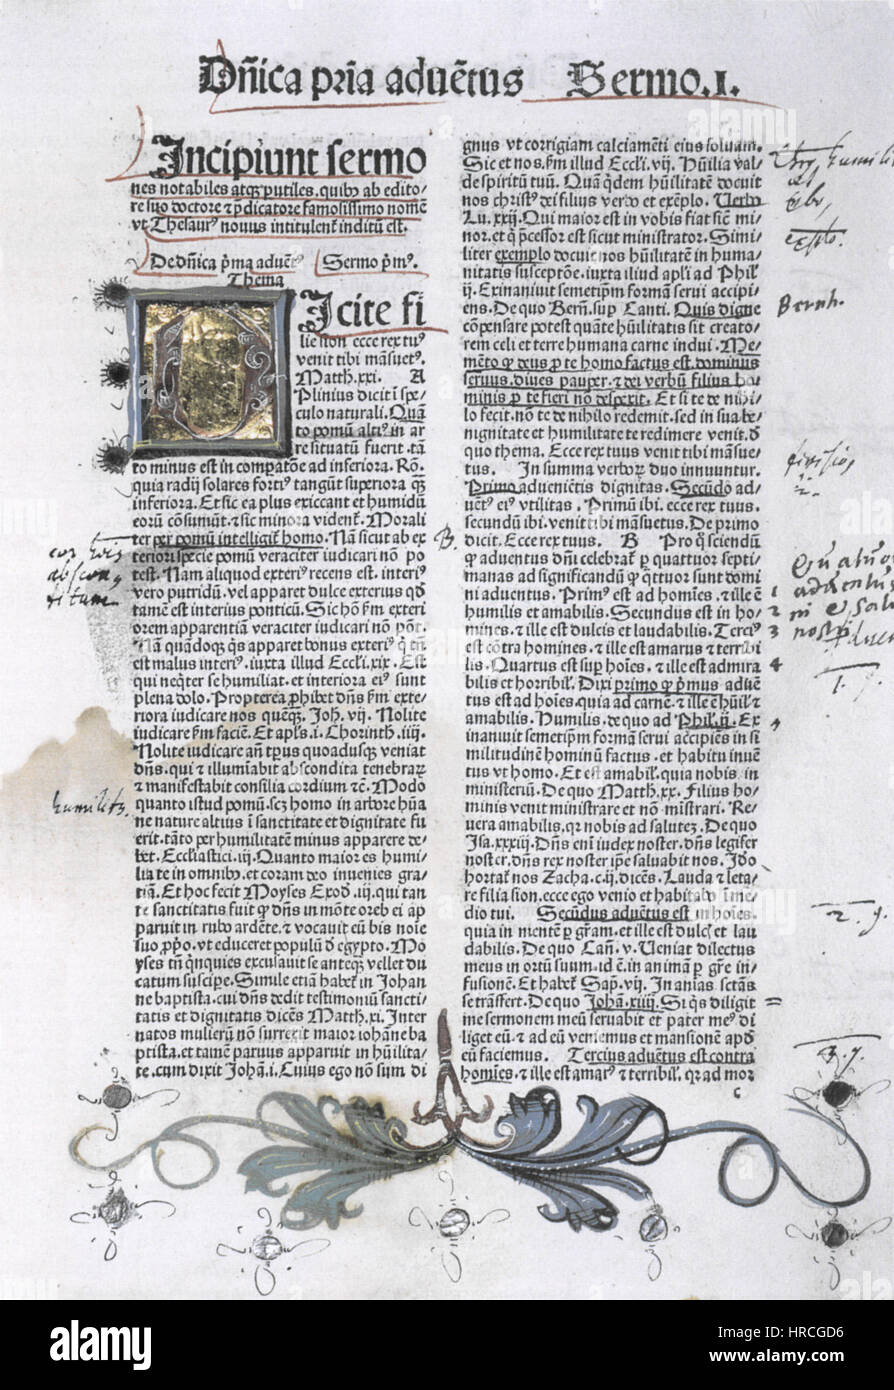 Dñica pria aduẽtus Sermo.1.
Incipiunt sermo
nes notabiles atqꝫ putiles.quibꝰ ab edito/
re suo doctore ⁊ p̃dicatore famosissimo nomẽ
vt Thesaurꝰ nouus intitulent̃ inditũ est.
De dñica p̃ma aduẽtꝰ Sermo p̃mꝰ.
Thema
Icite fi
lie sion ecce rex tuꝰ
venit tibi mãsuetꝰ.
Matth.xxi. A
Plinius dicit ĩ spe/
culo naturali. Quã
to pomũ altiꝰ in ar
re situatũ fuerit.tã
to minus est in compatõe ad inferiora. Rõ.
quia radij solares fortiꝰ tangũt superiora qꝫ
inferiora. Et sic ea plus exiccant et humidũ
eorũ cõsumũt.⁊ sic minora vident̃. Morali
ter per pomũ intelligit̃ homo. Nã sicut ab ex
teriori specie pomũ veraciter iudicari non po
test. Nam aliquod exteriꝰ recens est.interiꝰ
vero putridũ.vel apparet dulce exterius qd̃
tamẽ est interius ponticũ. Sic hõ ẜm exteri
orem apparentiã veraciter iudicari nõ põt.
Nã quandoqꝫ q̃s apparet bonus exteriꝰ q̃ tñ
est malus interiꝰ.iuxta illud Eccli.xix. Est
qui neq̃ter se humiliat.et interiora eiꝰ sunt
plena dolo. Propterea ꝓhibet dñs ẜm exte/
riora iudicare nos quẽqꝫ. Joh.vij. Nolite
iudicare ẜm faciẽ. Et apl̃s.i.Chorinth.iiij.
Nolite iudicare añ tr̃us quoadusqꝫ veniat
dñs.qui ⁊ illumiabit abscondita tenebrarꝫ
⁊ manifestabit consilia cordium ⁊c̃. Modo
quanto istud pomũ.scꝫ homo in arbore hũa
ne nature altius ĩ sanctitate et dignitate fu
erit.tãto per humilitatẽ minus apparere de/
bet. Ecclesiastici.iij. Quanto maior es humi
lia te in omnibꝰ.et coram deo inuenies gra/
tiã. Et hoc fecit Moyses Exod̃.iij.qui tan
te sanctitatis fuit ꝙ dñs in mõte oreb ei ap
paruit in rubo ardẽte.⁊ vocauit eũ bis noĩe
suo ꝓpo.vt educeret populũ d̃ egypto. Mo
yses tñ q̃nquies excusauit se anteqꝫ vellet du
catum suscipe. Simile etiã habet̃ in Johan
ne baptista.cui dñs dedit testimoniũ sancti/
tatis et dignitatis dicẽs Matth.xi. Inter
natos mulierũ nõ surrexit maior iohãne ba
ptista.et tamẽ paruus apparuit in hũilita/
te.cum dixit Johã.i. Cuius ego nõ sum di
gnus vt corrigiam calciamẽti eius soluam.
Sic et nos.ẜm illud Eccli.vij. Hũilia val/
de spiritũ tuũ. Quã q̃dem hũilitatẽ docuit
nos christꝰ dei filius verbo et exẽplo. Verbo
Lu.xxij. Qui maior est in vobis fiat sicut mi/
nor.et q̃ p̃cessor est sicut ministrator. Simi/
liter exemplo docuit nos hũilitatẽ in huma/
nitatis susceptõe.iuxta illud apl̃i ad Phil̃
ij. Exinaniuit semetip̃m formã serui accipi/
ens. De quo Berñ.sup Canti. Quis digne
cõpensare potest quãte hũilitatis sit creato/
rem celi et terre humana carne indui. Me/
mẽto ꝙ deus ꝓ te homo factus est.dominus
seruus.diues pauper.⁊ dei verbũ filius ho/
minis ꝓ te fieri nõ despexit. Et si te de nihi/
lo fecit.nõ te de nihilo redemit.sed in sua be/
nignitate et humilitate te redimere venit.d̃
quo thema. Ecce rex tuus venit tibi mãsue/
tus. In summa verborꝫ duo innuuntur.
Primo aduenientis dignitas. Secũdo ad/
uẽtꝰ eiꝰ vtilitas. Primũ ibi.ecce rex tuus.
secundũ ibi.venit tibi mãsuetus. De primo
dicit. Ecce rex tuus. B Pro q̃ sciendũ
ꝙ aduentus dñi celebrat̃ ꝑ quattuor septi/
manas ad significandũ ꝙ q̃ttuor sunt domi
ni aduentus. Primꝰ est ad homĩes.⁊ ille ẽ
humilis et amabilis. Secundus est in ho/
mines.⁊ ille est dulcis et laudabilis. Terciꝰ
est cõtra homines.⁊ ille est amarus ⁊ terribi
lis. Quartus est sup hoĩes.⁊ ille est admira
bilis et horribil̃. Dixi primo ꝙ p̃mus aduẽ
tus est ad hoĩes.quia ad carnẽ.⁊ ille ẽ hũil̃ ⁊
amabilis. Humilis.de quo ad Phil̃.ij. Ex
inaniuit semetip̃m formã serui accipiẽs in si
militudinẽ hominũ factus.et habitu inuẽ
tus vt homo. Et est amabilis.quia nobis in
ministeriũ. De quo Matth.xx. Filius ho/
minis venit ministrare et nõ mĩstrari. Re/
uera amabilis.qꝛ nobis ad salutẽ. De quo
Isa.xxxiij. Dñs em̃ iudex noster.dñs legifer
noster.dñs rex noster ip̃e saluabit nos. Ido
hortat̃ nos Zacha.c.ij.dicẽs. Lauda ⁊ leta/
re filia sion.ecce ego venio et habitabo ĩ me/
dio tui. Secũdus aduẽtus est in hoĩes.
quia in mentẽ ꝑ gr̃am.et ille est dulcꝭ et lau
dabilis. De quo Cañ.v. Ueniat dilectus
meus in ortũ suum.id ẽ.in animã ꝑ gr̃e in/
fusionẽ. Et habet̃ Sap̃.vij. In aĩas sctãs
se trãsfert. De quo Johã.xiiij. Si q̃s diligit
me sermonem meũ seruabit et pater meꝰ di
liget eũ.⁊ ad eũ veniemus et mansionẽ apd̃
eũ faciemus. Tercius aduẽtus est contra
homĩes.⁊ ille est amarꝰ ⁊ terribil̃.qꝛ ad mor
c
cor hois
abscon
ditum
humilitas
B.
humilit
verbo,
explo.
Bernh.
divisio,
2.
1
2
3
4
Quatuor
aduentus
nostri
1. 9.
2. 9.
3. 9.
alamy
Image ID: HRCGD6
www.alamy.com